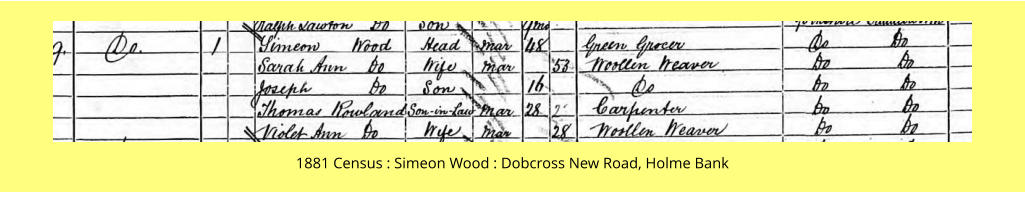 Ralph Lawton Do Son
9. Do. 1 Simeon Wood Head Mar 48 Green Grocer Do Do
Sarah Ann Do Wife Mar 53 Woollen Weaver Do Do
Joseph Do Son 16 Do Do Do
Thomas Rowland Son-in-Law Mar 28 Carpenter Do Do
Violet Ann Do Wife Mar 28 Woollen Weaver Do Do
1881 Census : Simeon Wood : Dobcross New Road, Holme Bank